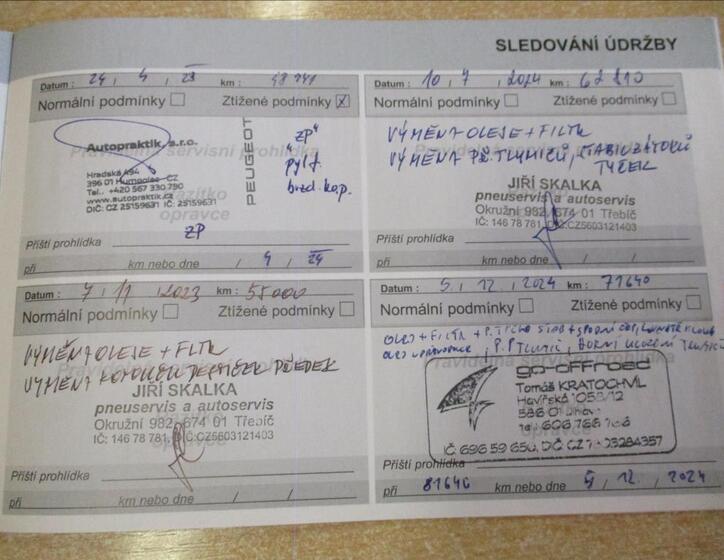 SLEDOVÁNÍ ÚDRŽBY
Datum : 24 / 4 / 23 km : 48 741
Normální podmínky Ztížené podmínky X
Pravidelná servisní prohlídka
Autopraktik, s.r.o.
Hradská 494
396 01 Humpolec CZ
Tel.: +420 567 330 790
www.autopraktik.cz
DIČ: CZ 25159631 IČ: 25159631
PEUGEOT
"ZP"
pylf.
brzd. kap.
razítko
opravce
Příští prohlídka ZP
při km nebo dne / 4 / 24
Datum : 10 / 7 / 2024 km : 62810
Normální podmínky Ztížené podmínky
VÝMĚNA OLEJE + FILTR
VÝMĚNA PŘ. TLUMIČŮ, STABILIZÁTORŮ
TYČEK
Pravidelná servisní prohlídka
JIŘÍ SKALKA
pneuservis a autoservis
Okružní 982, 674 01 Třebíč
IČ: 146 78 781, DIČ:CZ5603121403
Příští prohlídka
při km nebo dne / /
Datum : 7 / 11 / 2023 km : 55000
Normální podmínky Ztížené podmínky
VÝMĚNA OLEJE + FILTR
VÝMĚNA KOTOUČŮ + DESTIČEK PŘEDEK
Pravidelná servisní prohlídka
JIŘÍ SKALKA
pneuservis a autoservis
Okružní 982, 674 01 Třebíč
IČ: 146 78 781, DIČ:CZ5603121403
Příští prohlídka
při km nebo dne / /
Datum : 5 / 12 / 2024 km : 71640
Normální podmínky Ztížené podmínky
OLEJ + FILTR +
P.P TLUMIČ, HORNÍ ULOŽENÍ
Pravidelná servisní prohlídka
go-offroad
Tomáš KRATOCHVÍL
Havířská 1058/12
586 01 Jihlava
tel. 606 766 766
IČ: 696 59 650, DIČ: CZ7103284357
opravce
Příští prohlídka
při 81640 km nebo dne 5 / 12 / 2024